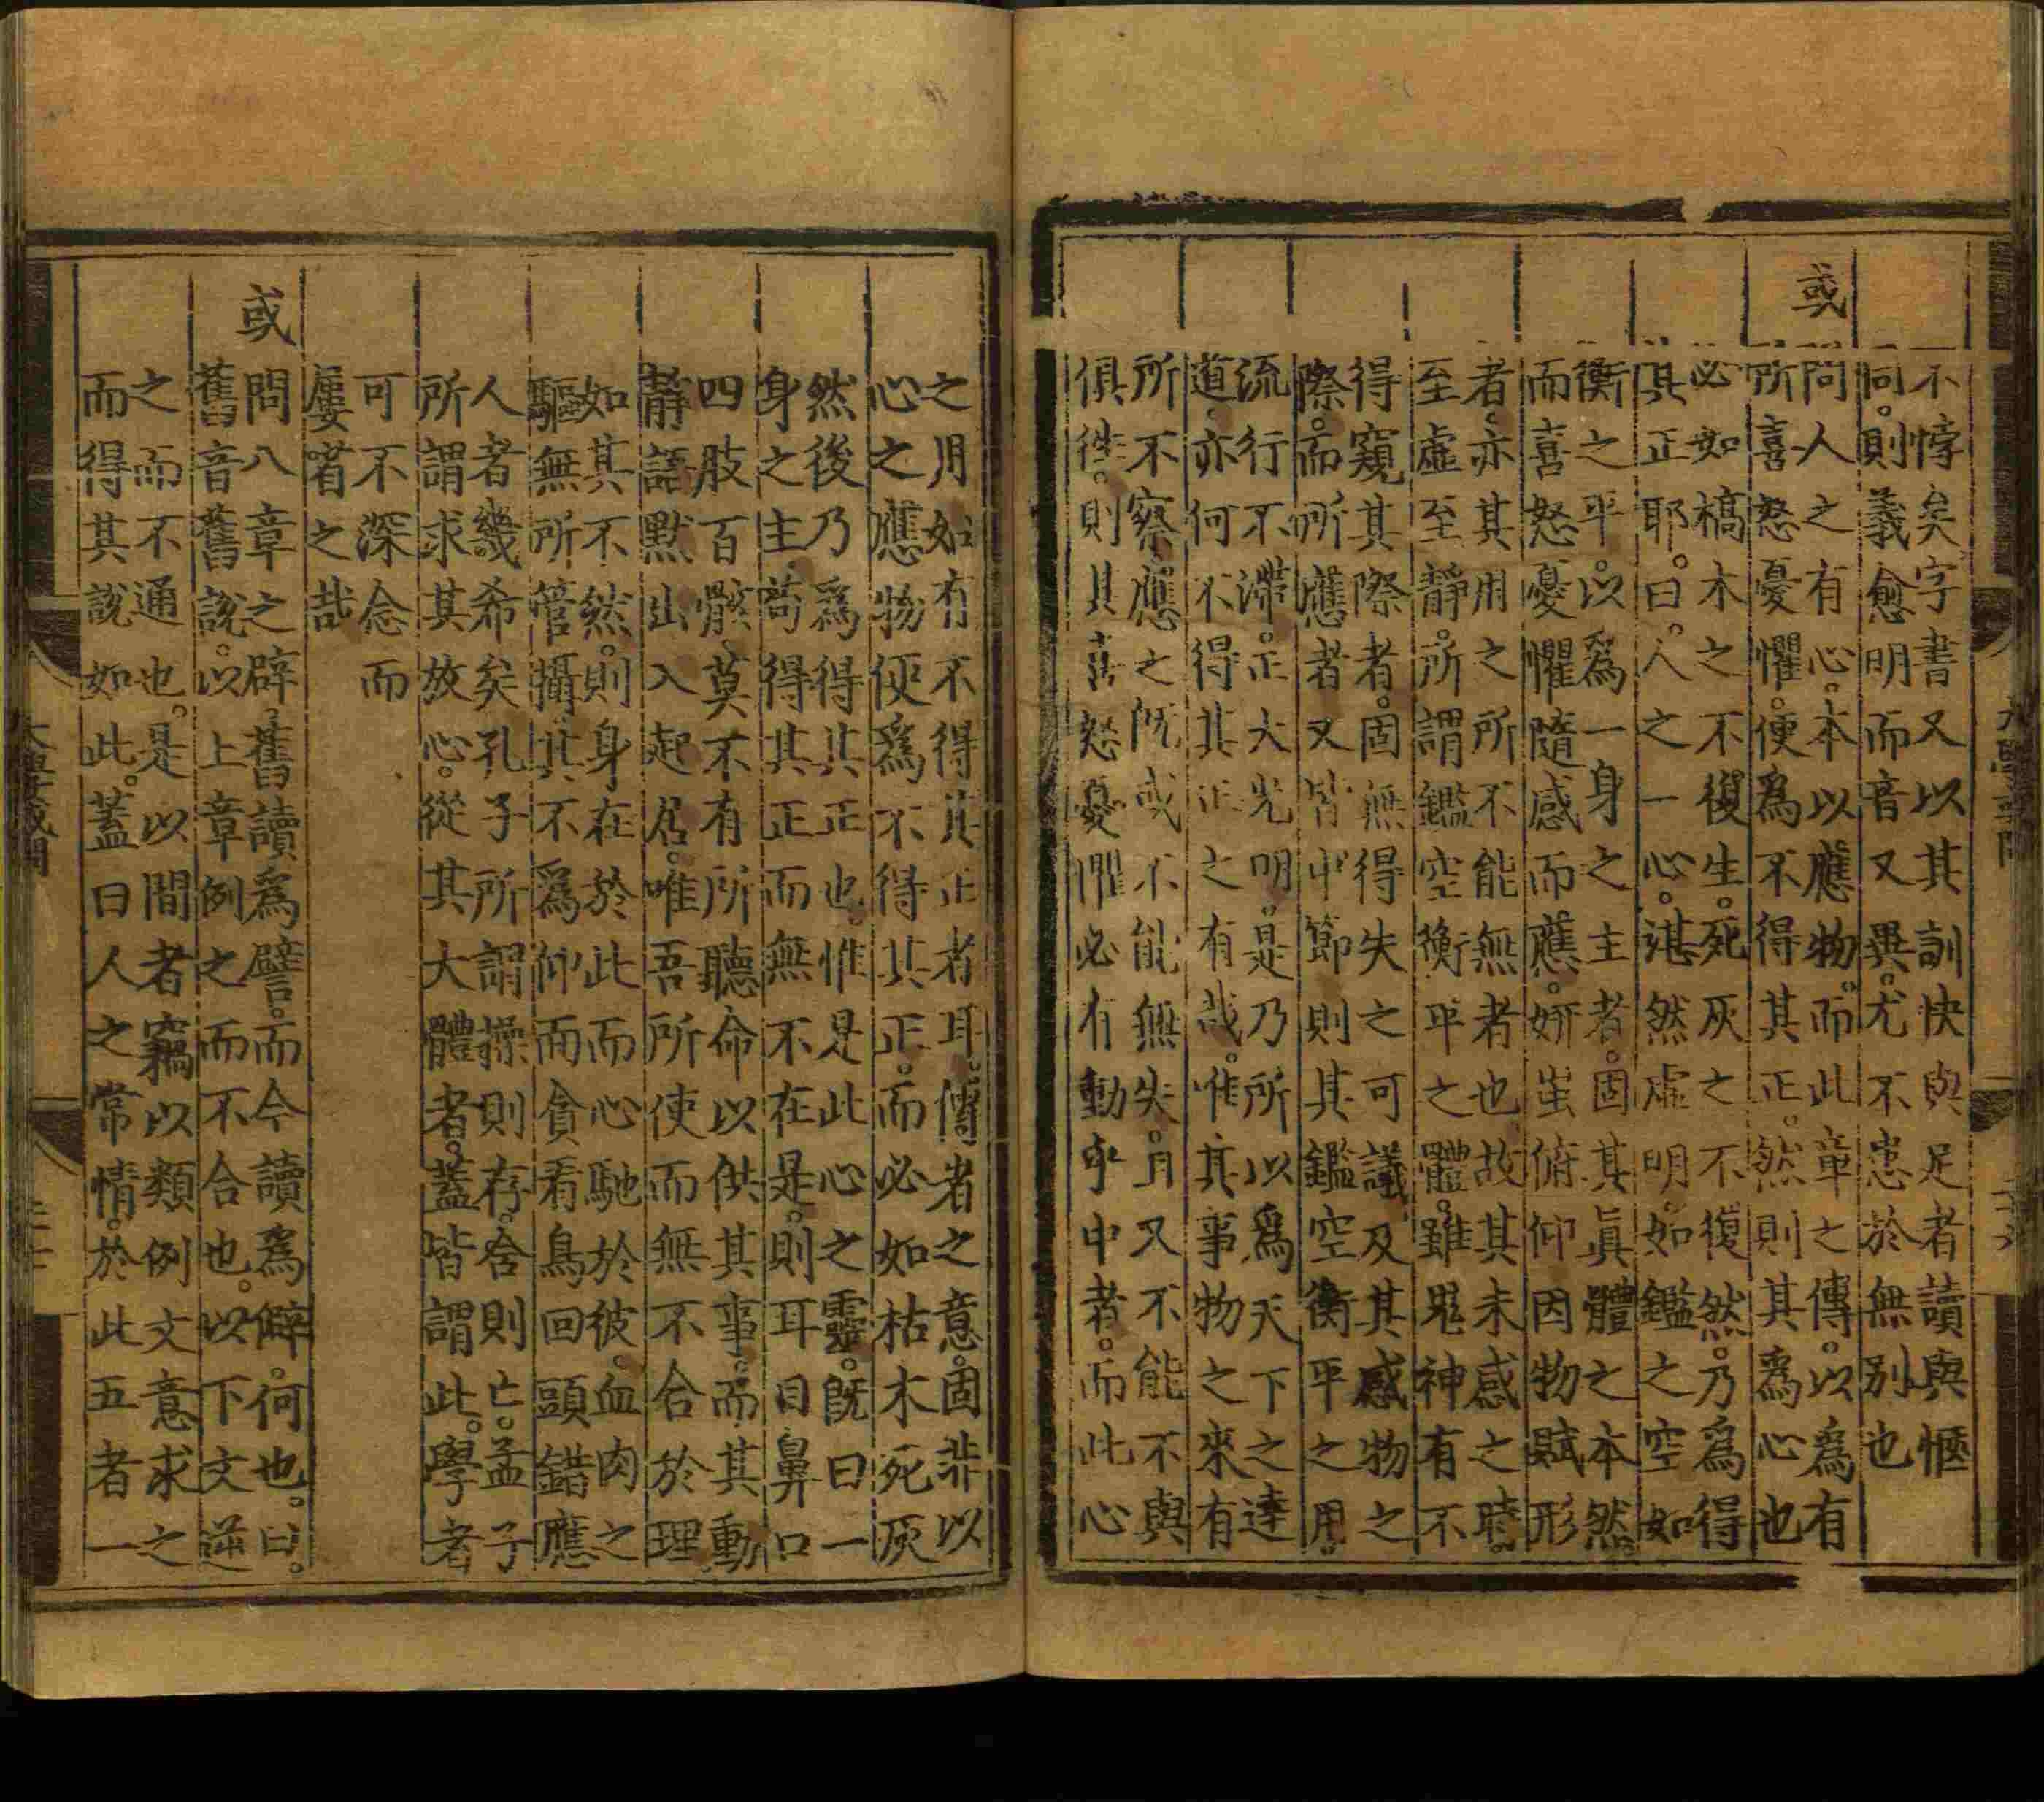 不悖矣字書又以其訓快與足者讀與愜
同。則義愈明而音又異。尤不患於無別也
或問人之有心。本以應物。而此章之傳。以爲有
所喜怒憂懼。便爲不得其正。然則其爲心也
必如槁木之不復生。死灰之不復然。乃爲得
其正耶。曰。人之一心。湛然虛明。如鑑之空如
衡之平。以爲一身之主者。固其眞體之本然。
而喜怒憂懼隨感而應。妍蚩俯仰因物賦形
者。亦其用之所不能無者也。故其未感之時。
至虛至靜。所謂鑑空衡平之體。雖鬼神有不
得窺其際者。固無得失之可議。及其感物之
際。而所應者又皆中節則其鑑空衡平之用。
流行不滯。正大光明。是乃所以爲天下之達
道。亦何不得其正之有哉。唯其事物之來有
所不察。應之旣或不能無失。且又不能不與
俱徃。則其喜怒憂懼必有動乎中者。而此心
之用如有不得其正者耳。傳者之意。固非以
心之應物便爲不得其正。而必如枯木死灰
然後乃爲得其正也。惟是此心之靈。旣曰一
身之主。苟得其正而無不在是。則耳目鼻口
四肢百骸。莫不有所聽命以供其事。而其動
靜語默出入起居。唯吾所使而無不合於理
如其不然。則身在於此而心馳於彼。血肉之
軀無所管攝。其不爲仰而貪看鳥回頭錯應
人者幾希矣孔子所謂操則存。舍則亡。孟子
所謂求其放心。從其大體者。蓋皆謂此。學者
可不深念而
屢省之哉
或問八章之辟。舊讀爲譬。而今讀爲僻。何也。曰。
舊音舊說。以上章例之而不合也。以下文逆
之而不通也。是以間者竊以類例文意求之
而得其說如此。蓋曰人之常情。於此五者一